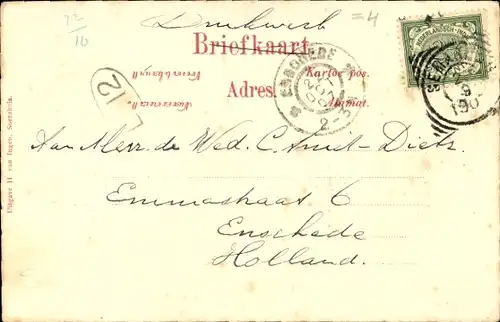 22
10
Drukwerk
=4
Briefkaart
Adres.
Kartoe pos.
Alamat.
ENSCHEDE
2-3N
NEDERLANDSCH-INDIË
12
Aan Mevr. de Wed. C. Smit-Dietz
Emmastraat 6
Enschede
Holland.
Uitgave H van Ingen, Soerabaia.